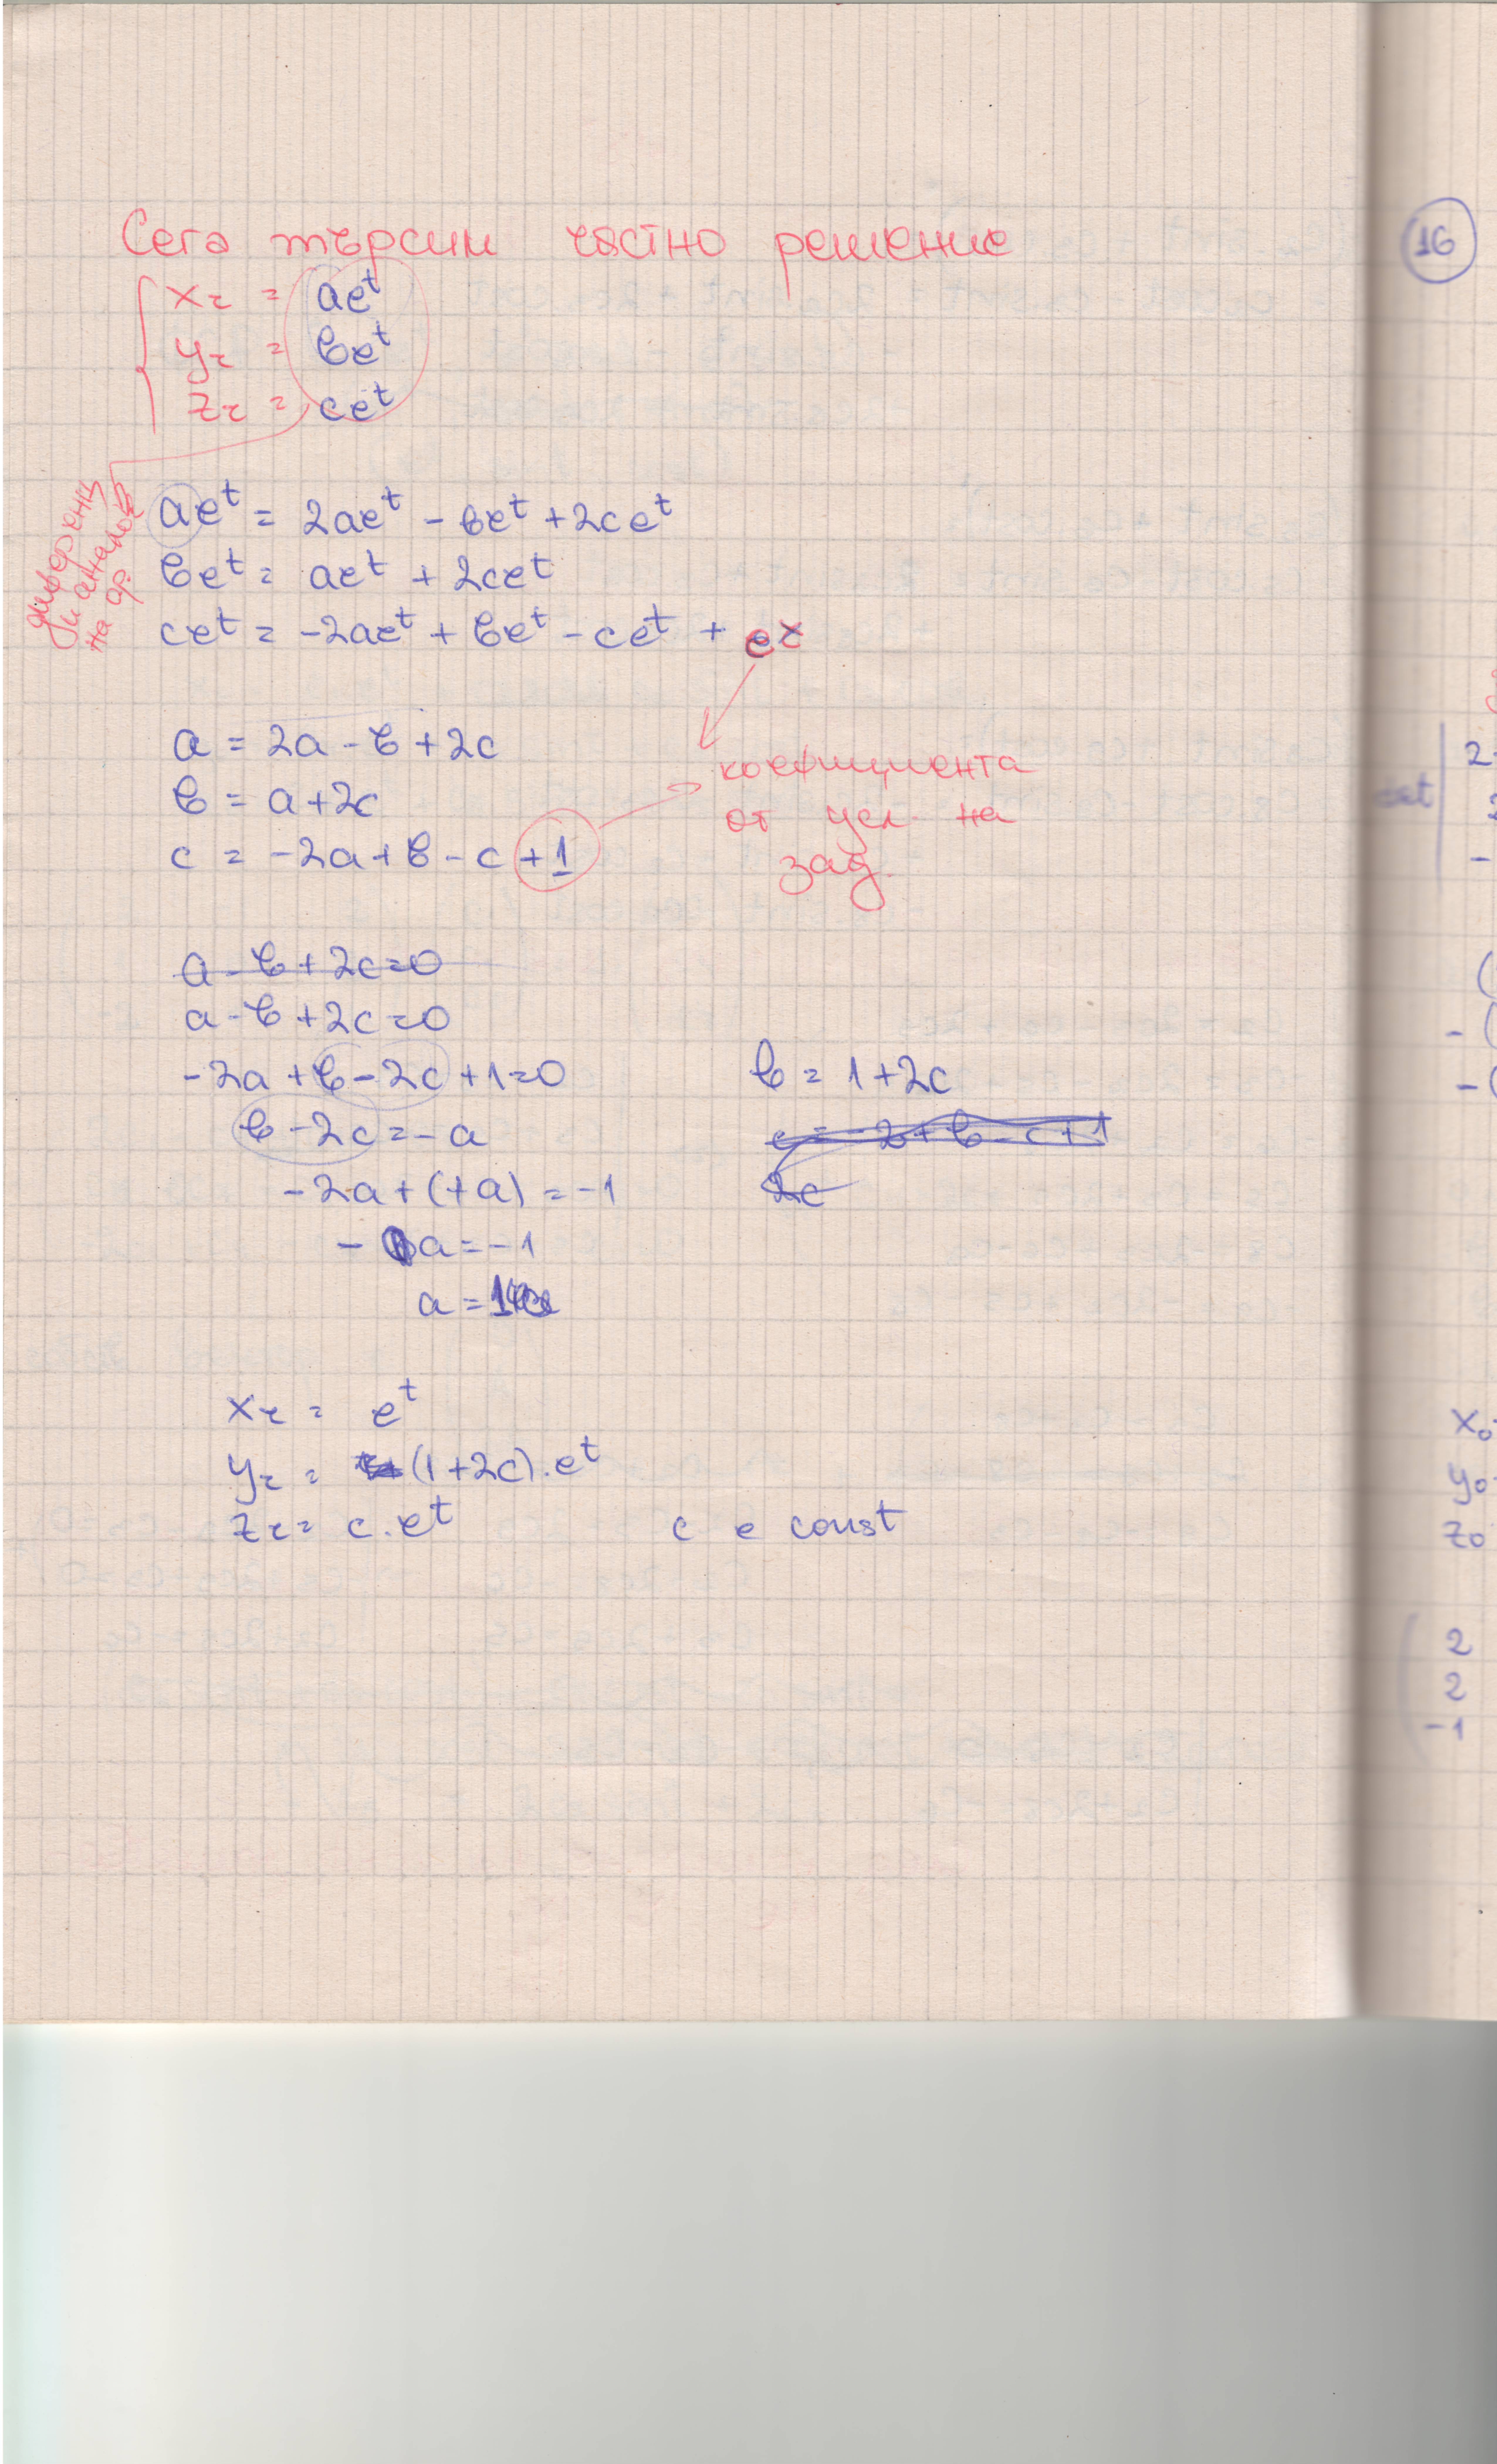 Сега търсим частно решение
xч = ae^t
yч = бe^t
zч = ce^t
ae^t = 2ae^t - бe^t + 2ce^t
бe^t = ae^t + 2ce^t
ce^t = -2ae^t + бe^t - ce^t + e^x
a = 2a - б + 2c
б = a + 2c
c = -2a + б - c + 1
коефициента
от усл. на
зад.
a - б + 2c = 0
a - б + 2c = 0
-2a + б - 2c + 1 = 0
б - 2c = - a
-2a + (+a) = -1
- a = -1
a = 1
б = 1 + 2c
c = -2 + б - c + 1
2c
xч = e^t
yч = (1 + 2c) . e^t
zч = c . e^t c е const
16
x0
y0
z0
2
2
-1